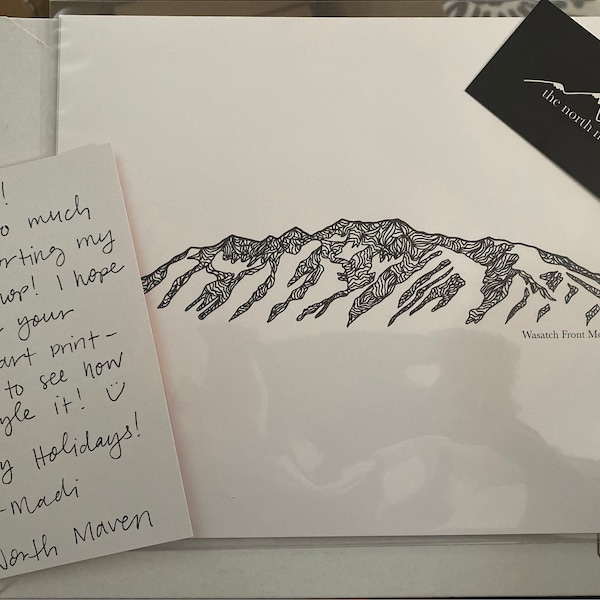 !
o much
orting my
hop! I hope
your
art print-
to see how
yle it! ☺
y Holidays!
-Madi
North Maven
the north m
Wasatch Front Mo